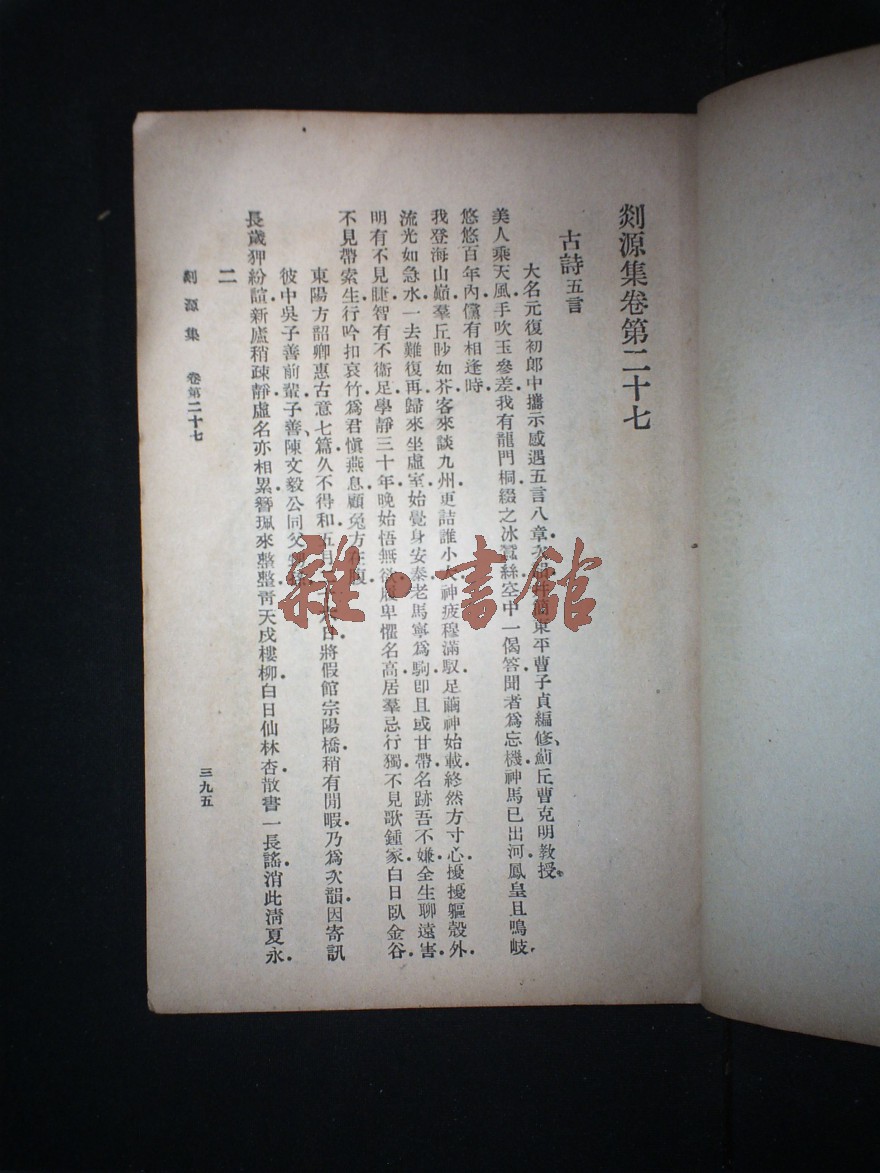 剡源集卷第二十七
古詩五言
大名元復初郎中攜示感遇五言八章次韻幷簡東平曹子貞編修、薊丘曹克明教授。
美人乘天風手吹玉參差我有龍門桐綴之冰蠶絲空中一偈答聞者爲忘機神馬已出河鳳皇且鳴岐
悠悠百年內儻有相逢時
我登海山巔羣丘眇如芥客來談九州更詰誰小大神疲穆滿馭足繭神始載終然方寸心擾擾軀殼外
流光如急水一去難復再歸來坐虛室始覺身安泰老馬寧爲駒卽且或甘帶名跡吾不嫌全生聊遠害
明有不見睫智有不衞足學靜三十年晚始悟無欲履卑懼名高居羣忌行獨不見歌鍾家白日臥金谷
不見帶索生行吟扣哀竹爲君愼燕息顧兔方在腹
東陽方韶卿惠古意七篇久不得和五月日將假館宗陽橋稍有閒暇乃爲次韻因寄訊
彼中吳子善前輩子善、陳文毅公同父
長歲狎紛諠新廬稍疎靜虛名亦相累簪珮來整整靑天戍樓柳白日仙林杏散書一長謠消此淸夏永
二
剡源集 卷第二十七 三九五
雜·書館